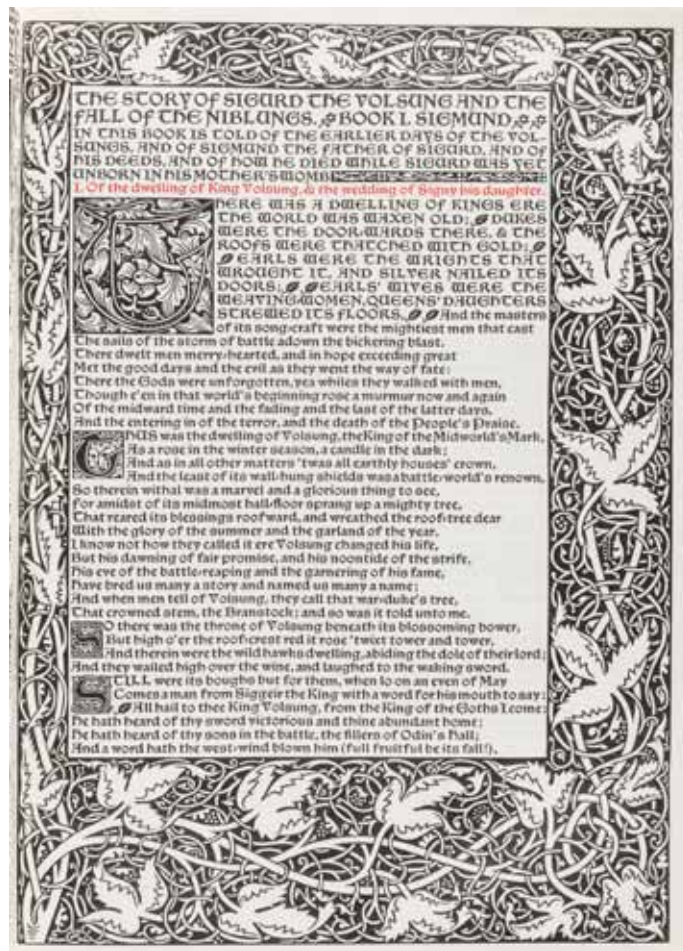 THE STORY OF SIGURD THE VOLSUNG AND THE
FALL OF THE NIBLUNGS. BOOK I. SIGMUND.
IN THIS BOOK IS TOLD OF THE EARLIER DAYS OF THE VOL-
SUNGS, AND OF SIGMUND THE FATHER OF SIGURD, AND OF
HIS DEEDS, AND OF HOW HE DIED WHILE SIGURD WAS YET
UNBORN IN HIS MOTHER'S WOMB
I. Of the dwelling of King Volsung, & the wedding of Signy his daughter.
THERE WAS A DWELLING OF KINGS ERE
THE WORLD WAS WAXEN OLD; DUKES
WERE THE DOOR-WARDS THERE, & THE
ROOFS WERE THATCHED WITH GOLD;
EARLS WERE THE WRIGHTS THAT
WROUGHT IT, AND SILVER NAILED ITS
DOORS; EARLS' WIVES WERE THE
WEAVING-WOMEN, QUEENS' DAUGHTERS
STREWED ITS FLOORS, And the masters
of its song-craft were the mightiest men that cast
The sails of the storm of battle adown the bickering blast.
There dwelt men merry-hearted, and in hope exceeding great
Met the good days and the evil as they went the way of fate:
There the Gods were unforgotten, yea whiles they walked with men,
Though e'en in that world's beginning rose a murmur now and again
Of the midward time and the fading and the last of the latter days,
And the entering in of the terror, and the death of the People's Praise.
THUS was the dwelling of Volsung, the King of the Midworld's Mark,
As a rose in the winter season, a candle in the dark;
And as in all other matters 'twas all earthly houses' crown,
And the least of its wall-hung shields was a battle-world's renown,
So therein withal was a marvel and a glorious thing to see,
For amidst of its midmost hall-floor sprang up a mighty tree,
That reared its blessings roofward, and wreathed the roof-tree dear
With the glory of the summer and the garland of the year.
I know not how they called it ere Volsung changed his life,
But his dawning of fair promise, and his noontide of the strife,
His eve of the battle-reaping and the garnering of his fame,
Have bred us many a story and named us many a name;
And when men tell of Volsung, they call that war-duke's tree,
That crowned stem, the Branstock; and so was it told unto me.
SO there was the throne of Volsung beneath its blossoming bower,
But high o'er the roof-crest red it rose 'twixt tower and tower,
And therein were the wild hawks dwelling, abiding the dole of their lord;
And they wailed high over the wine, and laughed to the waking sword.
STILL were its boughs but for them, when lo on an even of May
Comes a man from Siggeir the King with a word for his mouth to say:
All hail to thee King Volsung, from the King of the Goths I come:
He hath heard of thy sword victorious and thine abundant home;
He hath heard of thy sons in the battle, the fillers of Odin's Hall;
And a word hath the west-wind blown him (full fruitful be its fall!),